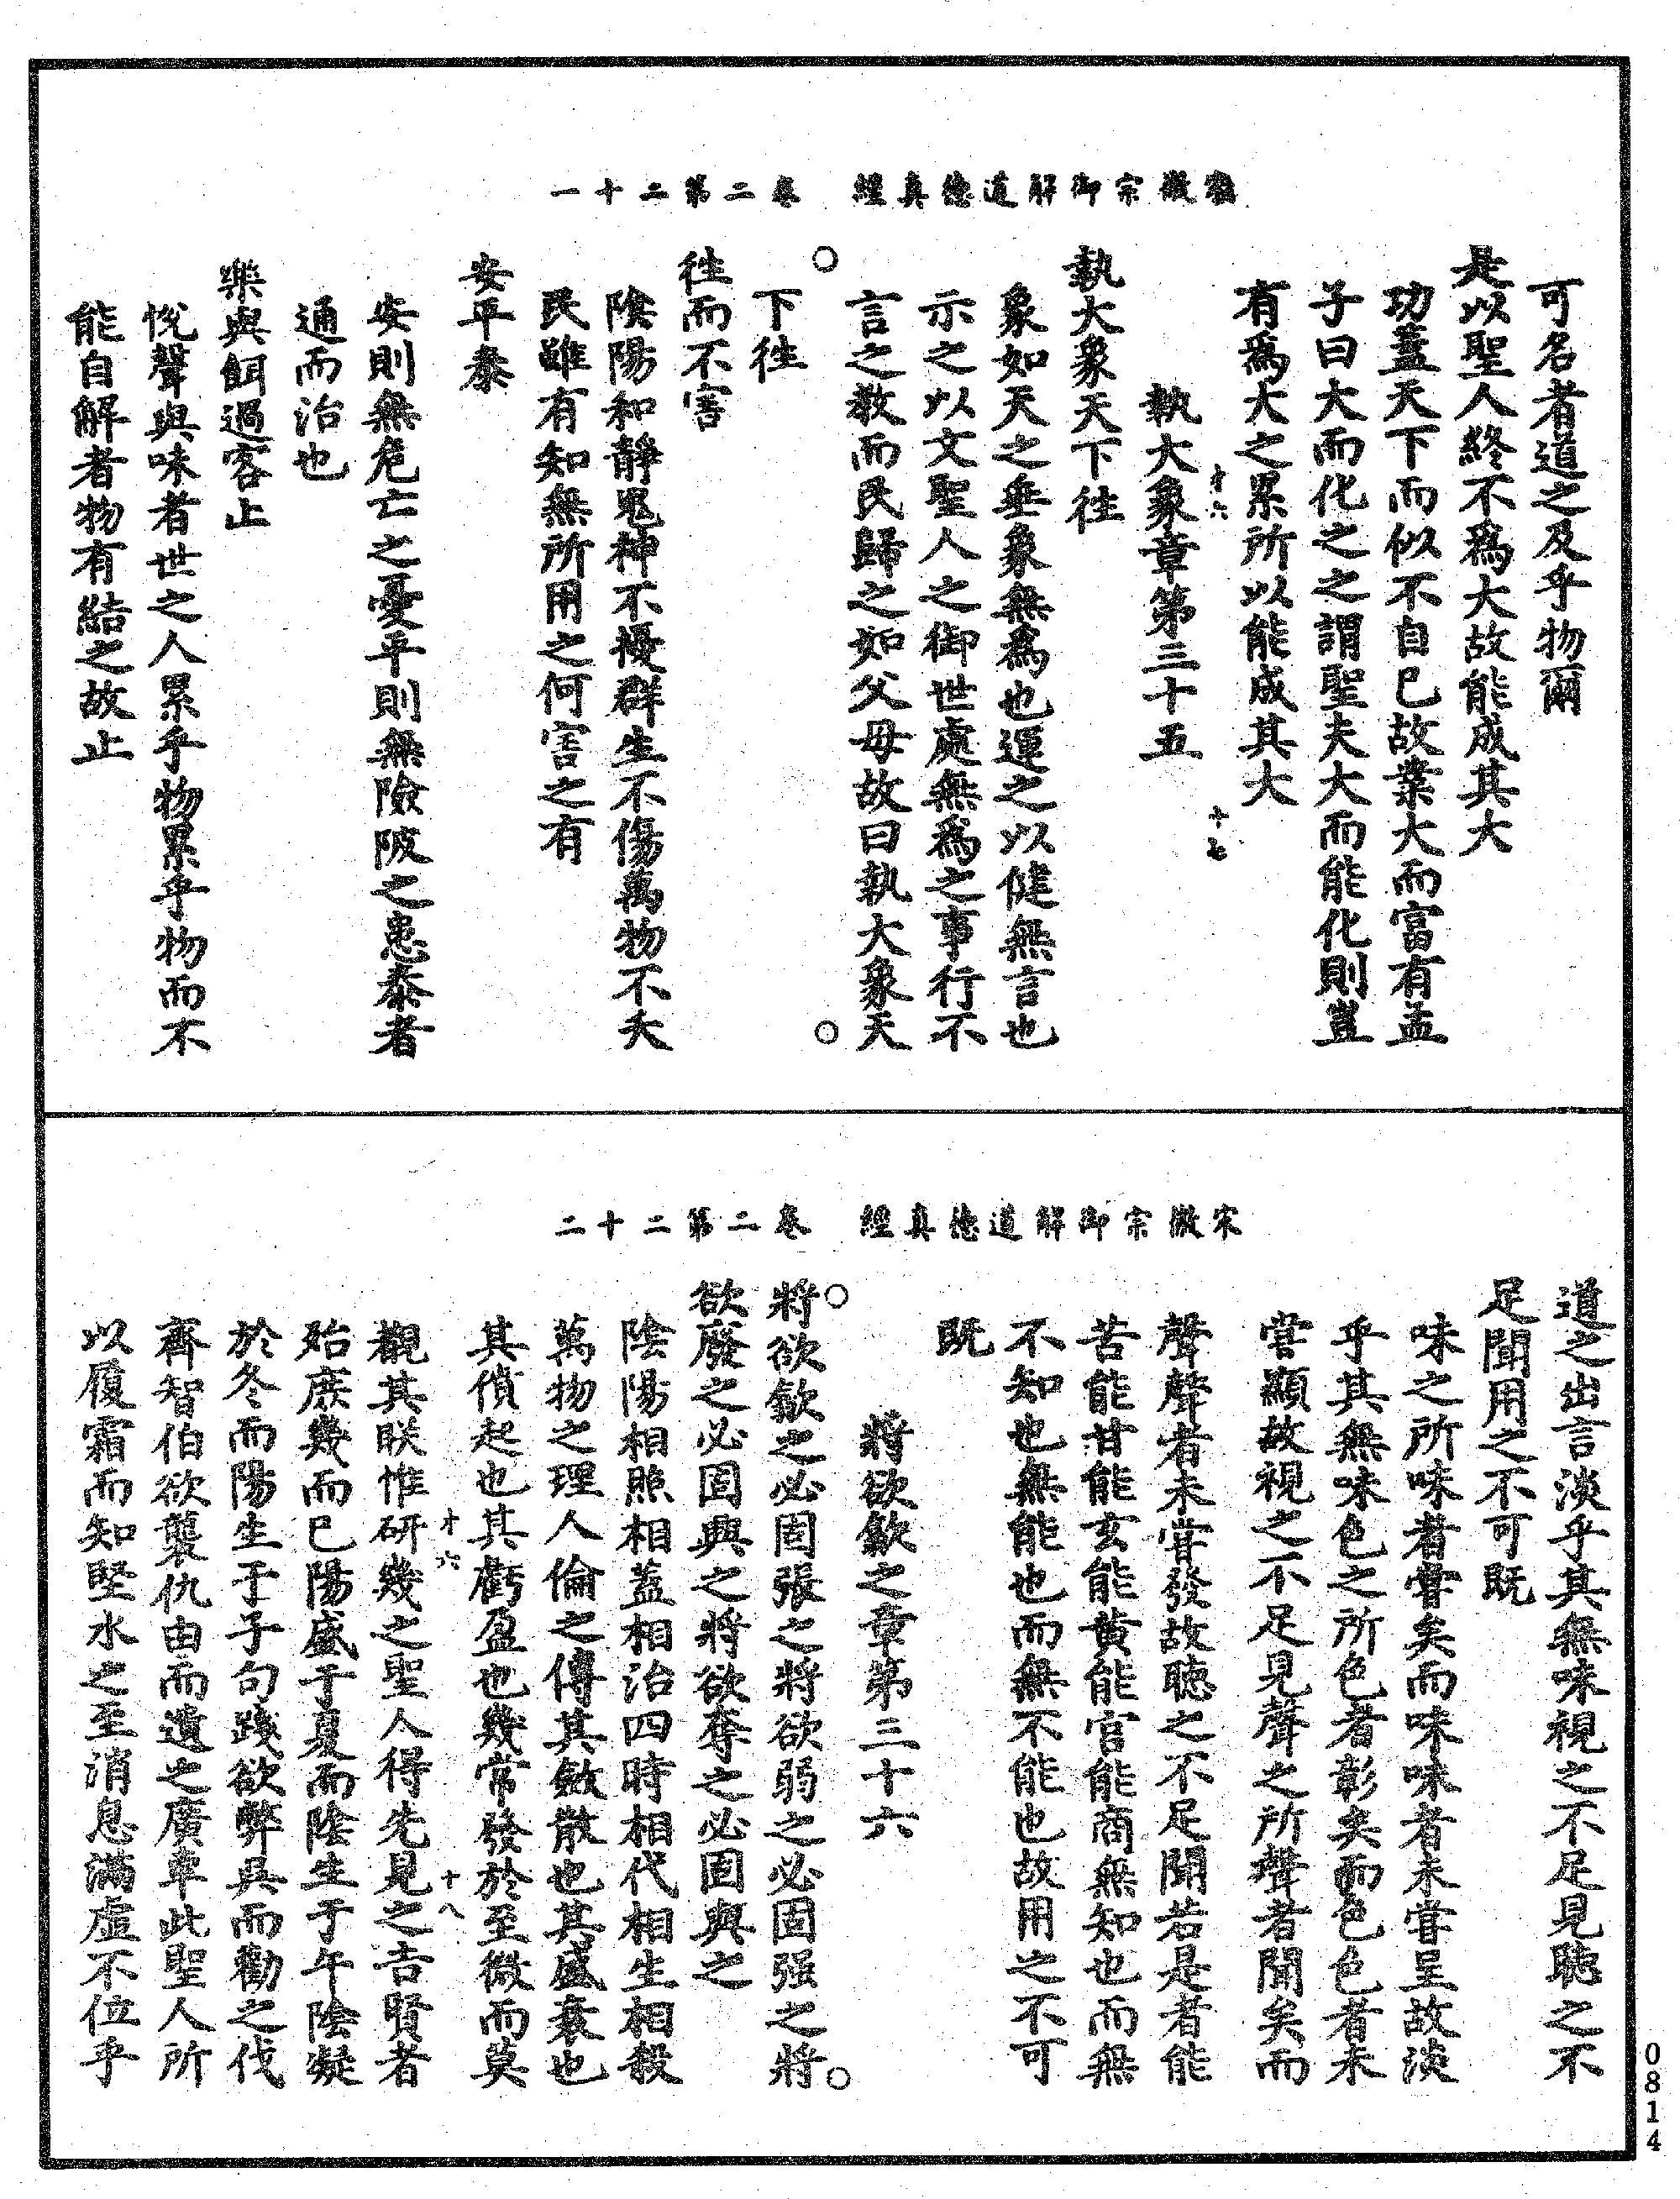 宋徽宗御解道德真經　卷二第二十一
可名者道之及乎物爾
是以聖人終不為大故能成其大
功蓋天下而似不自已故業大而富有孟
子曰大而化之之謂聖夫大而能化則豈
有為大之累所以能成其大
十六
十七
執大象章第三十五
執大象天下往
象如天之垂象無為也運之以健無言也
示之以文聖人之御世處無為之事行不
言之教而民歸之如父母故曰執大象天
下往
往而不害
陰陽和靜鬼神不擾群生不傷萬物不夭
民雖有知無所用之何害之有
安平泰
安則無危亡之憂平則無險陂之患泰者
通而治也
樂與餌過客止
悅聲與味者世之人累乎物累乎物而不
能自解者物有結之故止
宋徽宗御解道德真經　卷二第二十二
道之出言淡乎其無味視之不足見聽之不
足聞用之不可既
味之所味者嘗矣而味味者未嘗呈故淡
乎其無味色之所色者彰矣而色色者未
嘗顯故視之不足見聲之所聲者聞矣而
聲聲者未嘗發故聽之不足聞若是者能
苦能甘能玄能黃能宮能商無知也而無
不知也無能也而無不能也故用之不可
既
將欲歙之章第三十六
將欲歙之必固張之將欲弱之必固强之將
欲廢之必固興之將欲奪之必固與之
陰陽相照相蓋相治四時相代相生相殺
萬物之理人倫之傳其斂散也其盛衰也
其僨起也其虧盈也幾常發於至微而莫
十六
十八
觀其眹惟研幾之聖人得先見之吉賢者
殆庶幾而已陽盛于夏而陰生于午陰凝
於冬而陽生于子句踐欲弊吳而勸之伐
齊智伯欲襲仇由而遺之廣車此聖人所
以履霜而知堅水之至消息滿虛不位乎
0814